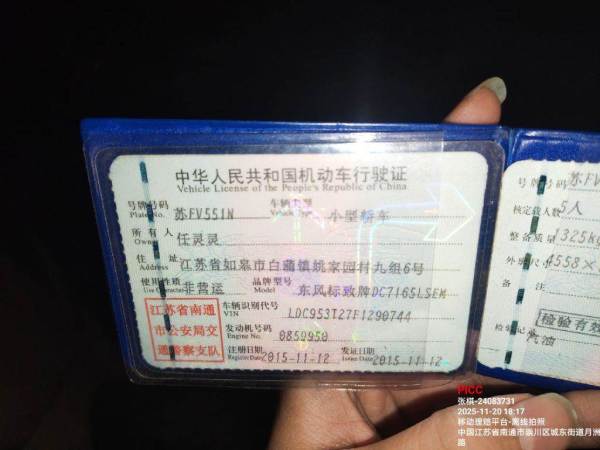 中华人民共和国机动车行驶证
Vehicle License of the People's Republic of China
号牌号码 苏FV551N 车辆类型 小型轿车
Plate No. Vehicle Type
所有人 任灵灵
Owner
住址 江苏省如皋市白蒲镇姚家园村九组6号
Address
使用性质 非营运 品牌型号 东风标致牌DC7165LSEM
Use Character Model
江苏省南通
市公安局交
通警察支队
车辆识别代号 LDC953T27F1290744
VIN
发动机号码 0859950
Engine No.
注册日期 2015-11-12 发证日期 2015-11-12
Register Date Issue Date
号牌号码 苏FV
核定载人数 5人
整备质量 1325kg
外廓尺寸 4558×1
备注
检验有效
检验记录 汽油
PICC
张棋-24083731
2025-11-20 18:17
移动理赔平台-离线拍照
中国江苏省南通市崇川区城东街道月洲
路